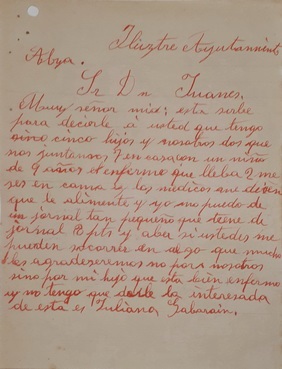 Ilüztre Ayuntamiento
Abya.
Sr Dn Juanes.
Muuy señor mio: esta sirbe
para decirle á usted que tengo
cinco hijos y nosotros dos que
nos juntamos 7 en casa con un niño
de 9 años el enfermo que lleba 2 me
ses en cama y los medicos me dicen
que la alimente y yo no puedo de
un jornal tan pequeño que tiene de
jornal 8 pts y aber si ustedes me
pueden socorrer en algo que mucho
les agradeseremos no por nosotros
sino por mi hijo que esta bien enfermo
y no tengo que darle la interesada
de esta es Juliana Gabarain.